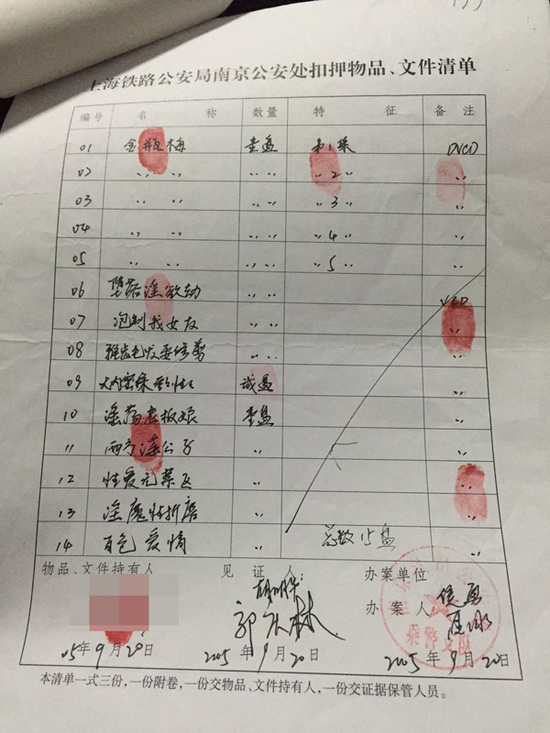 上海铁路公安局南京公安处扣押物品、文件清单
编号 名 称 数量 特 征 备注
01 金瓶梅 壹盘 第1集 DVCD
02 〃 〃 〃〃 〃2〃 〃
03 〃 〃 〃〃 〃3〃 〃
04 〃 〃 〃〃 〃4〃 〃
05 〃 〃 〃〃 〃5〃 〃
06 堕落淫 〃〃 VCD
07 泡制我女友 〃〃 〃
08 〃〃
09 贰盘
10 淫荡老板娘 壹盘
11 西门淫公子 〃
12 性爱无禁区 〃
13 淫魔性折磨 〃
14 百色爱情 〃 总数15盘
物品、文件持有人 见 证 人 办案单位
办 案 人
05年9月20日 2005年9月20日 2005年9月20日
乘警支队
本清单一式三份，一份附卷，一份交物品、文件持有人，一份交证据保管人员。